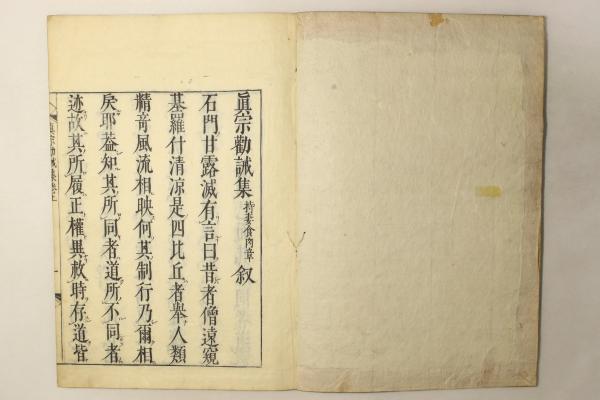 眞宗勸誡集持妻食肉章叙
石門甘露滅有言曰昔者僧遠窺
基羅什清涼是四比丘者舉人類
精奇風流相映何其制行乃爾相
戾耶葢知其所同者道所不同者
迹故其所履正權異赦時存道皆
眞宗勸誡集卷上